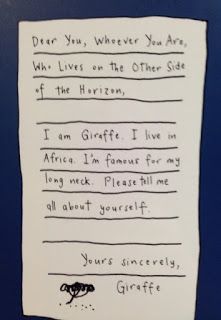 Dear You, Whoever You Are,
Who Lives on the Other Side
of the Horizon,
I am Giraffe. I live in
Africa. I'm famous for my
long neck. Please tell me
all about yourself.
Yours sincerely,
Giraffe